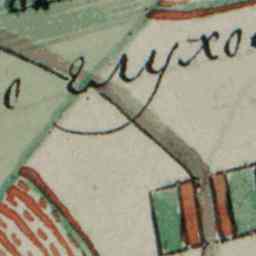 о глухо